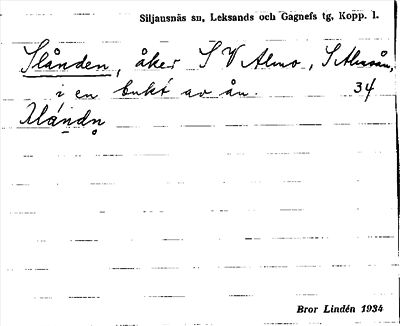 Siljansnäs sn, Leksands och Gagnefs tg, Kopp. l.
Slånden, åker S V Almo, S Almsån,
i en bukt av ån. 34
Bror Lindén 1934